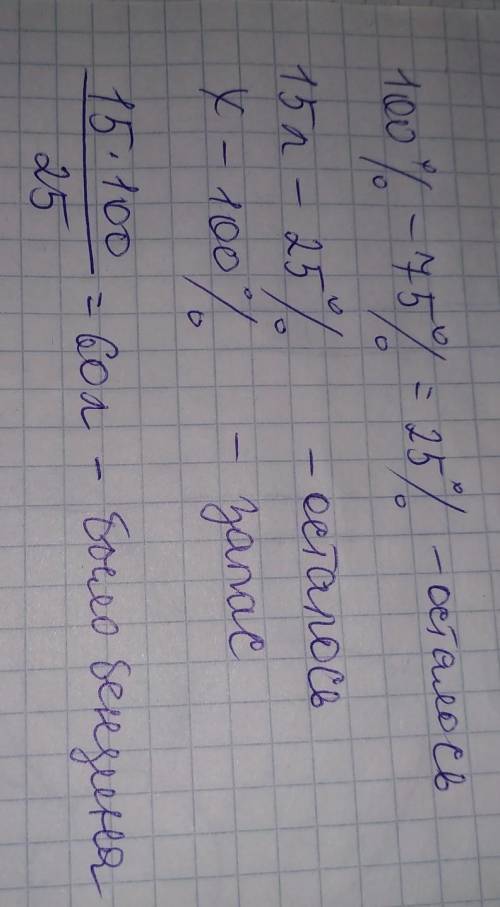 100% - 75% = 25% - осталось
15л - 25% - осталось
х - 100% - запас
15·100
25
= 60л - было бензина